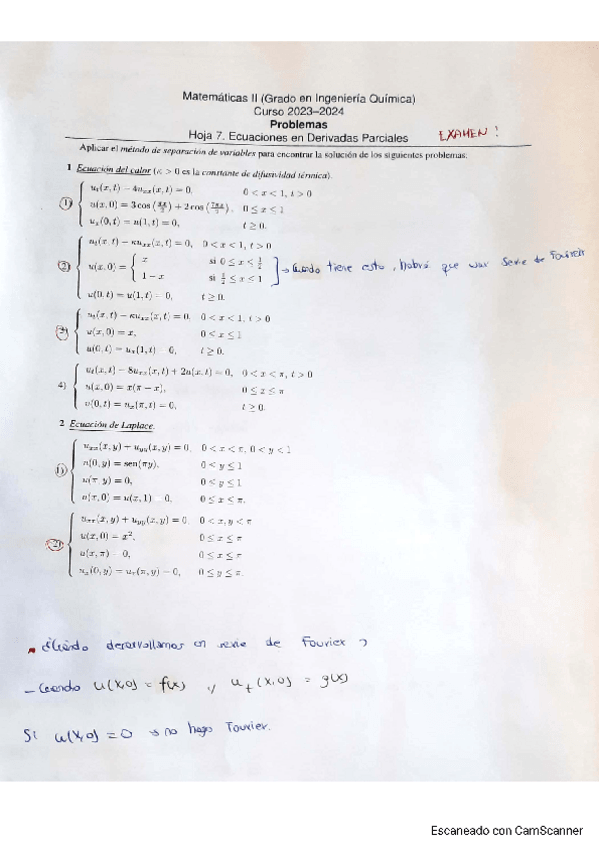 Matemáticas II (Grado en Ingeniería Química)
Curso 2023–2024
Problemas
Hoja 7. Ecuaciones en Derivadas Parciales
EXAMEN !
Aplicar el método de separación de variables para encontrar la solución de los siguientes problemas:
1 Ecuación del calor (κ > 0 es la constante de difusividad térmica).
1) u_t(x, t) − 4u_xx(x, t) = 0, 0 < x < 1, t > 0
u(x, 0) = 3 cos (πx/2) + 2 cos (7πx/2), 0 ≤ x ≤ 1
u_x(0, t) = u(1, t) = 0, t ≥ 0.
2) u_t(x, t) − κu_xx(x, t) = 0, 0 < x < 1, t > 0
u(x, 0) = { x si 0 ≤ x < 1/2
1 − x si 1/2 ≤ x < 1
→ Cuando tiene esto, habrá que usar Serie de Fourier
u(0, t) = u(1, t) = 0, t ≥ 0.
3) u_t(x, t) − κu_xx(x, t) = 0, 0 < x < 1, t > 0
u(x, 0) = x, 0 < x ≤ 1
u(0, t) = u_x(1, t) = 0, t ≥ 0.
4) u_t(x, t) − 8u_xx(x, t) + 2u(x, t) = 0, 0 < x < π, t > 0
u(x, 0) = x(π − x), 0 ≤ x ≤ π
u(0, t) = u_x(π, t) = 0, t ≥ 0.
2 Ecuación de Laplace.
1) u_xx(x, y) + u_yy(x, y) = 0, 0 < x < π, 0 < y < 1
u(0, y) = sen(πy), 0 < y ≤ 1
u(π, y) = 0, 0 < y ≤ 1
u(x, 0) = u(x, 1) = 0, 0 ≤ x ≤ π.
2) u_xx(x, y) + u_yy(x, y) = 0, 0 < x, y < π
u(x, 0) = x², 0 ≤ x ≤ π
u(x, π) = 0, 0 ≤ x ≤ π
u_x(0, y) = u_x(π, y) = 0, 0 ≤ y ≤ π.
¿Cuándo desarrollamos en serie de Fourier ?
− Cuando u(x,0) = f(x) , u_t(x,0) = g(x)
Si u(x,0) = 0 → no hago Fourier.
Escaneado con CamScanner